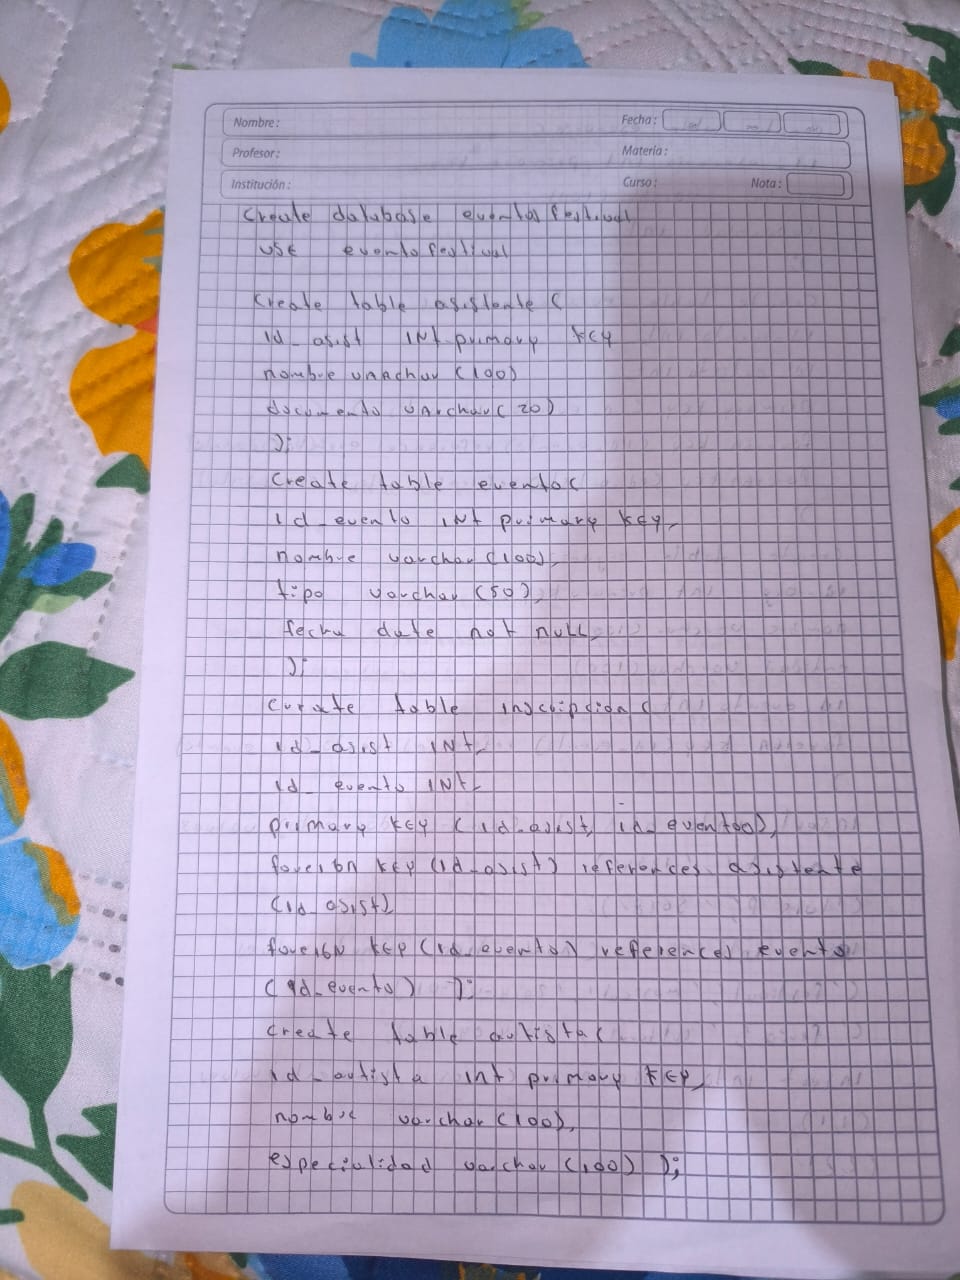 Nombre: Fecha:
Profesor: Materia:
Institución: Curso: Nota:
Create database eventofestival
USE eventofestival
Create table asistente (
id_asist INT primary KEY
nombre VARchar (100)
documento VArchar (20)
);
Create table evento(
id_evento INT primary KEY,
nombre varchar (100),
tipo varchar (50),
fecha date not null,
);
Create table inscripcion (
id_asist INT,
id_evento INT,
primary KEY (id_asist, id_evento),
foreign KEY (id_asist) references asistente
(id_asist)
foreign KEY (id_evento) references evento
(id_evento) );
Create table artista (
id_artista int primary KEY,
nombre varchar (100),
especialidad varchar (100) );